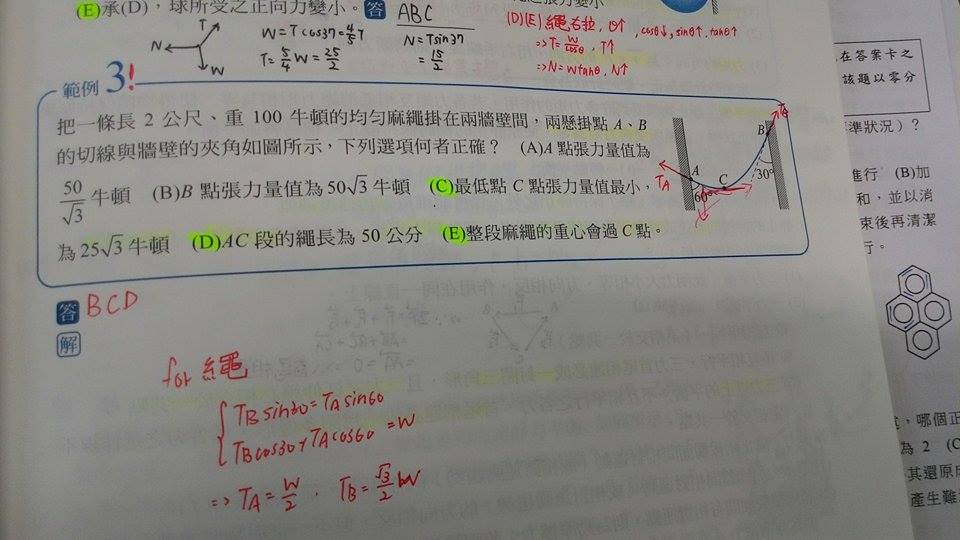 (E)承(D)，球所受之正向力變小。答 ABC
W=Tcos37=4/5T
T=5/4W=25/2
N=Tsin37
=15/2
(D)(E)繩右拉, θ↑, cosθ↓, sinθ↑, tanθ↑
=>T=W/cosθ, T↑
=>N=Wtanθ, N↑
T
N
W
在答案卡之
該題以零分
範例 3!
把一條長 2 公尺、重 100 牛頓的均勻麻繩掛在兩牆壁間，兩懸掛點 A、B
的切線與牆壁的夾角如圖所示，下列選項何者正確？ (A)A 點張力量值為
50/√3 牛頓 (B)B 點張力量值為 50√3 牛頓 (C)最低點 C 點張力量值最小，
為 25√3 牛頓 (D)AC 段的繩長為 50 公分 (E)整段麻繩的重心會過 C 點。
TB
B
A
C
TA
60°
30°
準狀況）？
進行 (B)加
和，並以消
束後再清潔
行。
答 BCD
解
for 繩
TBsin30=TAsin60
TBcos30+TAcos60=W
=>TA=W/2, TB=√3/2W
哪個正
為 2 (C
其還原
產生難